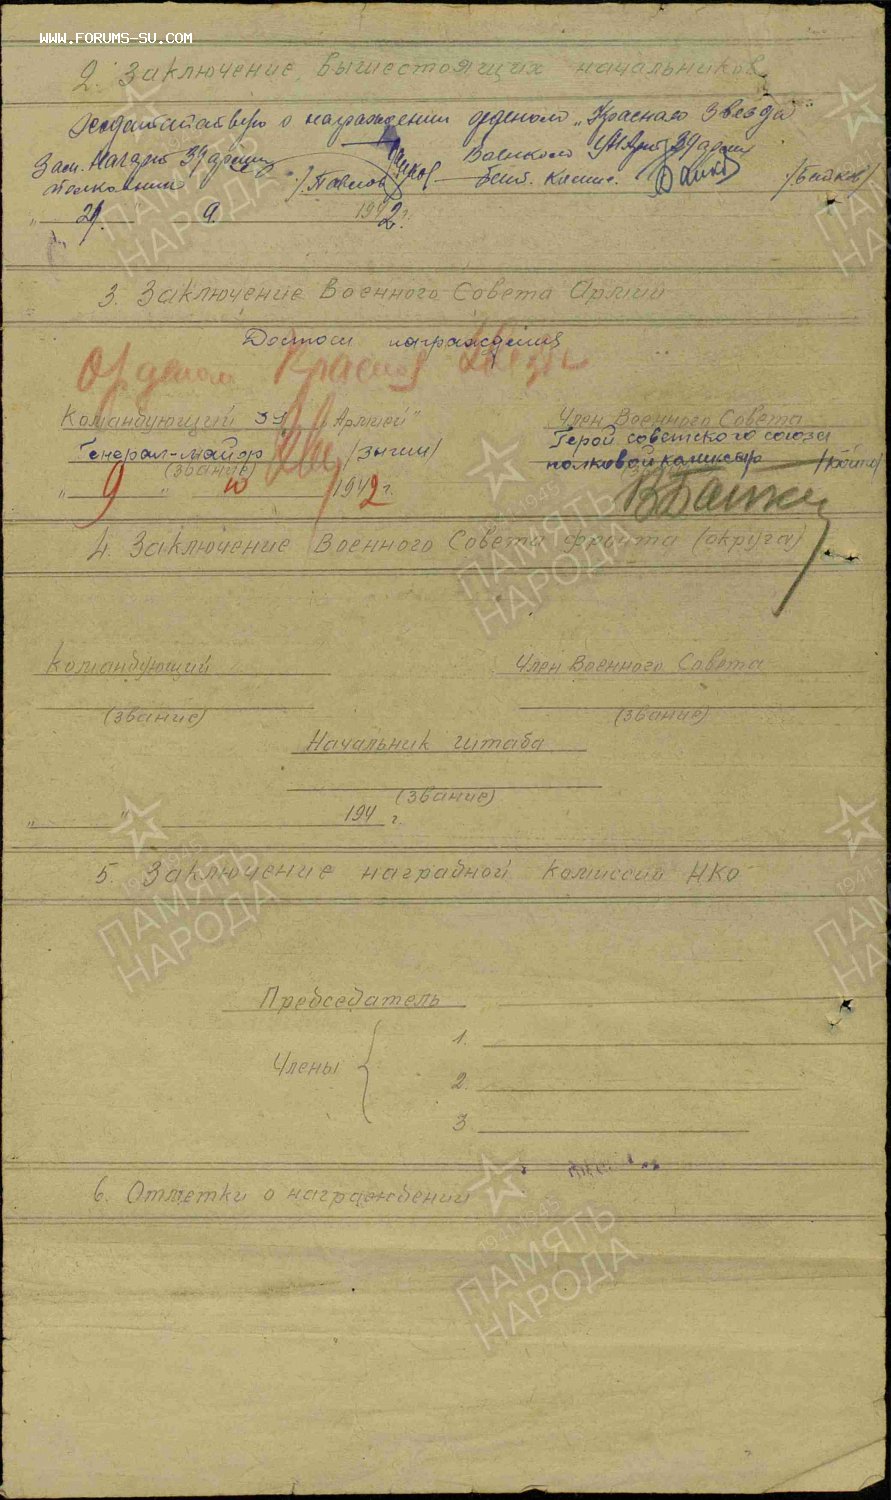 WWW.FORUMS-SU.COM
2. Заключение вышестоящих начальников
Ходатайствую о награждении орденом „Красная Звезда"
Зам. Начарт 39 армии
Военком УНАрт 39 армии
полковник /Павлов/
бат. комис. /Байков/
„21" 9. 1942 г.
3. Заключение Военного Совета Армии
Достоин награждения
Орденом Красной Звезды
Командующий 39 Армией"
Член Военного Совета
Генерал-майор /Зыгин/
Герой советского союза
(звание)
полковой комиссар
„9" 10 1942 г.
4. Заключение Военного Совета фронта (округа)
Командующий
Член Военного Совета
(звание)
(звание)
Начальник штаба
(звание)
„ " 194 г.
5. Заключение наградной комиссии НКО
Председатель
Члены
1.
2.
3
6. Отметки о награждении
1941-1945
ПАМЯТЬ
НАРОДА